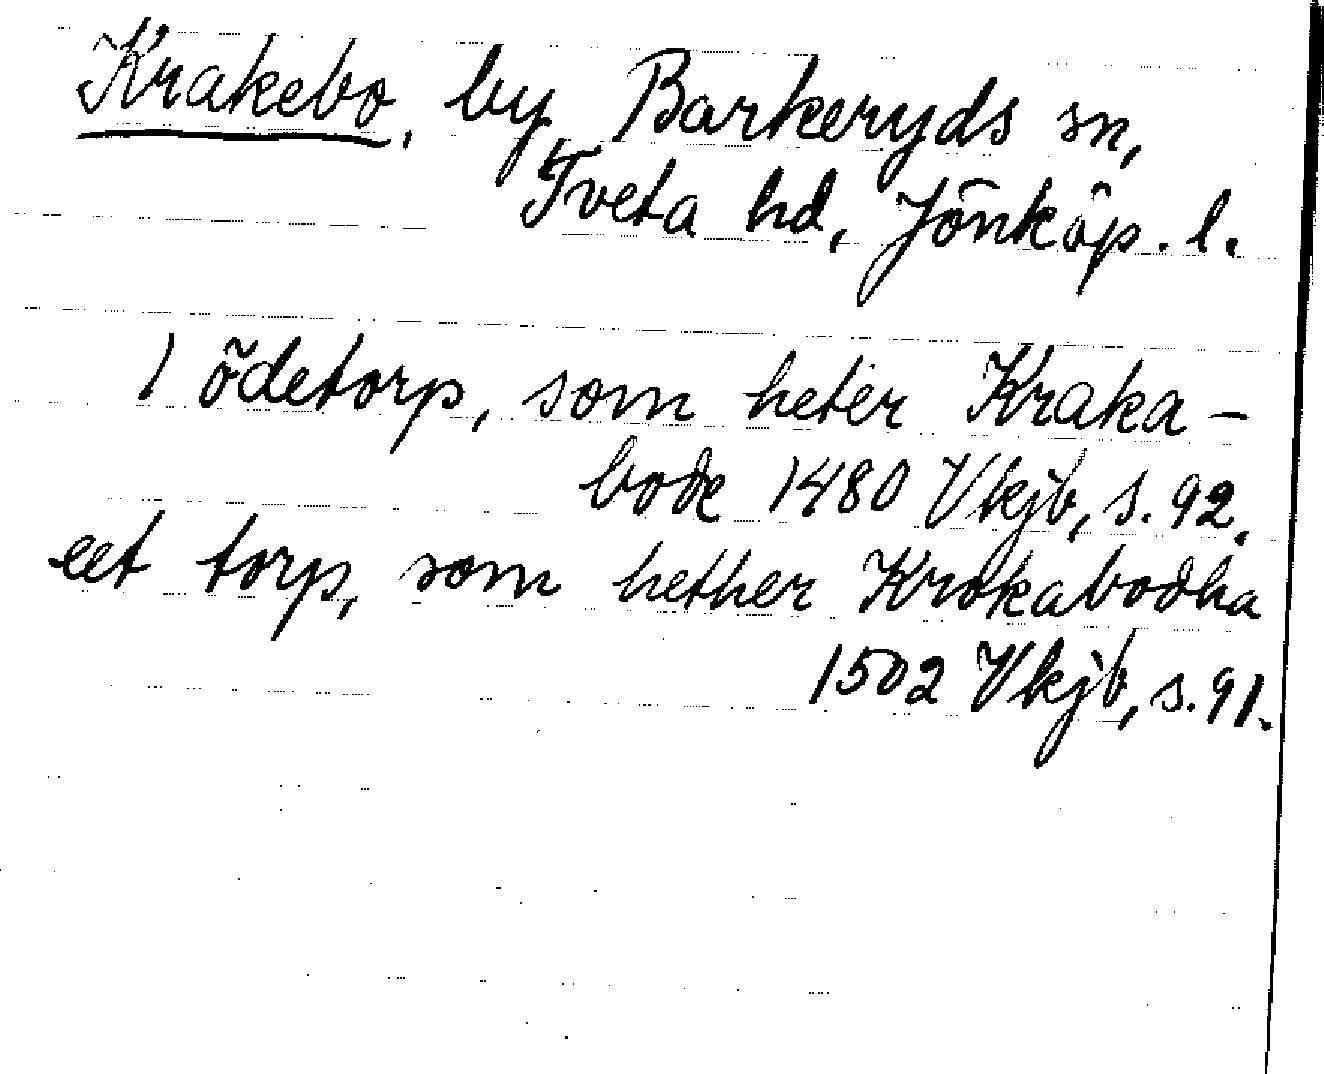 Krakebo, by, Barkeryds sn,
Tveta hd, Jönköp. l.
1 ödetorp, som heter Kraka-
bode 1480 Vkjb, s. 92.
eet torp, som hether Krokabodha
1502 Vkjb, s. 91.